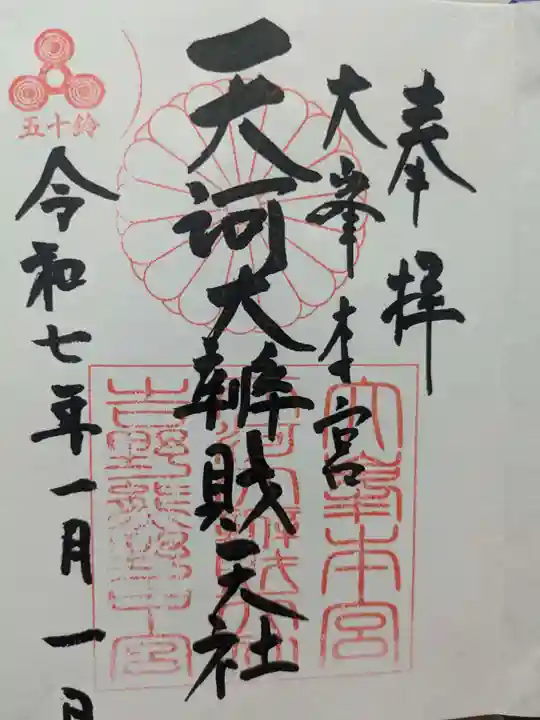 奉拝
大峯本宮
天河大辨財天社
五十鈴
令和七年一月一日
大峯本宮